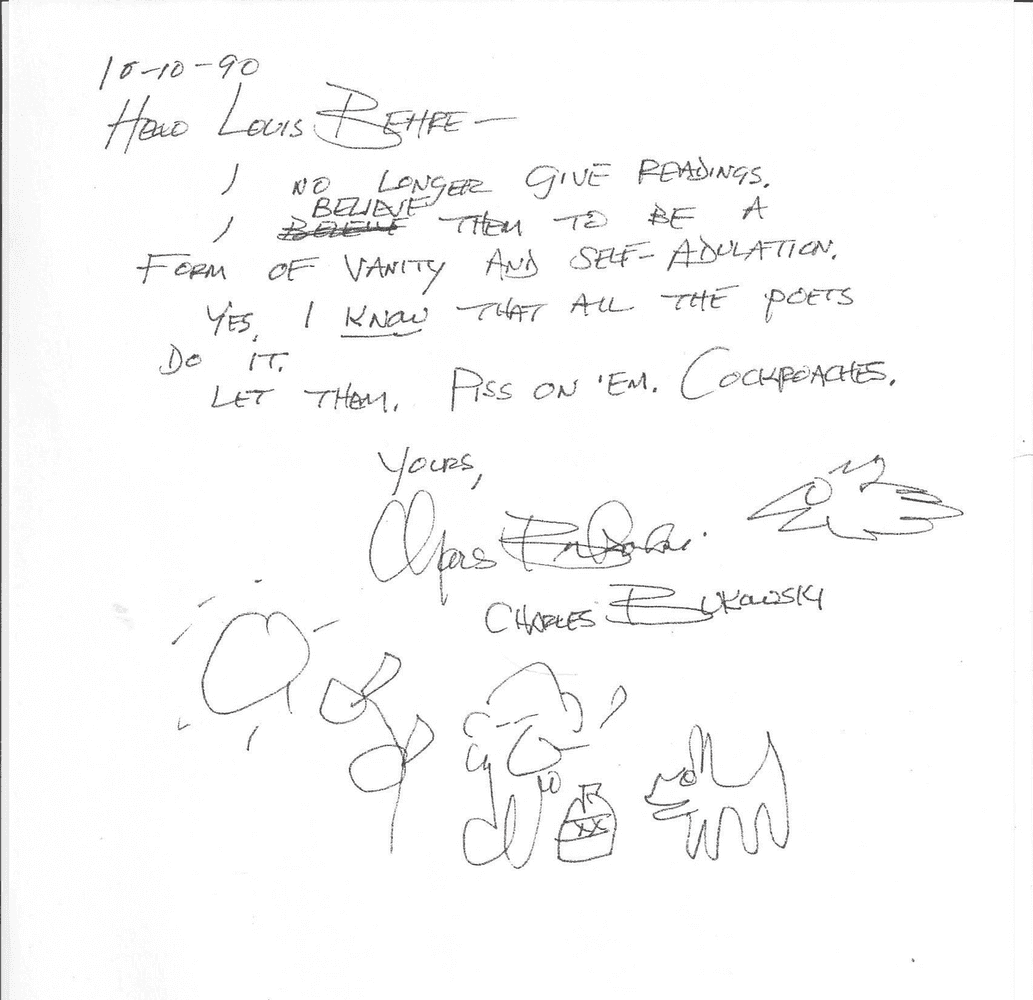 10-10-90
Hello Louis BEHRE —
I NO LONGER GIVE READINGS.
BELIEVE
I THEM TO BE A
FORM OF VANITY AND SELF-ADULATION.
YES, I KNOW THAT ALL THE POETS
DO IT.
LET THEM. PISS ON 'EM. COCKROACHES.
YOURS,
Charles Bukowski
CHARLES BUKOWSKI
XX